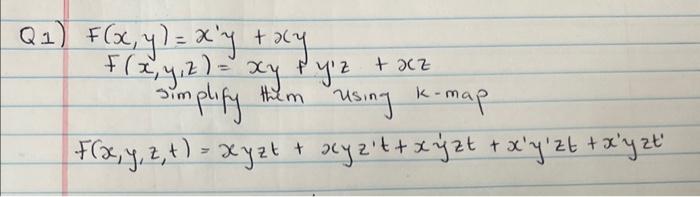 Q1) F(x,y) = x'y + xy
F(x,y,z) = xy + y'z + xz
simplify them using k-map
F(x,y,z,t) = xyzt + xyz't + xy'zt + x'y'zt + x'yzt'